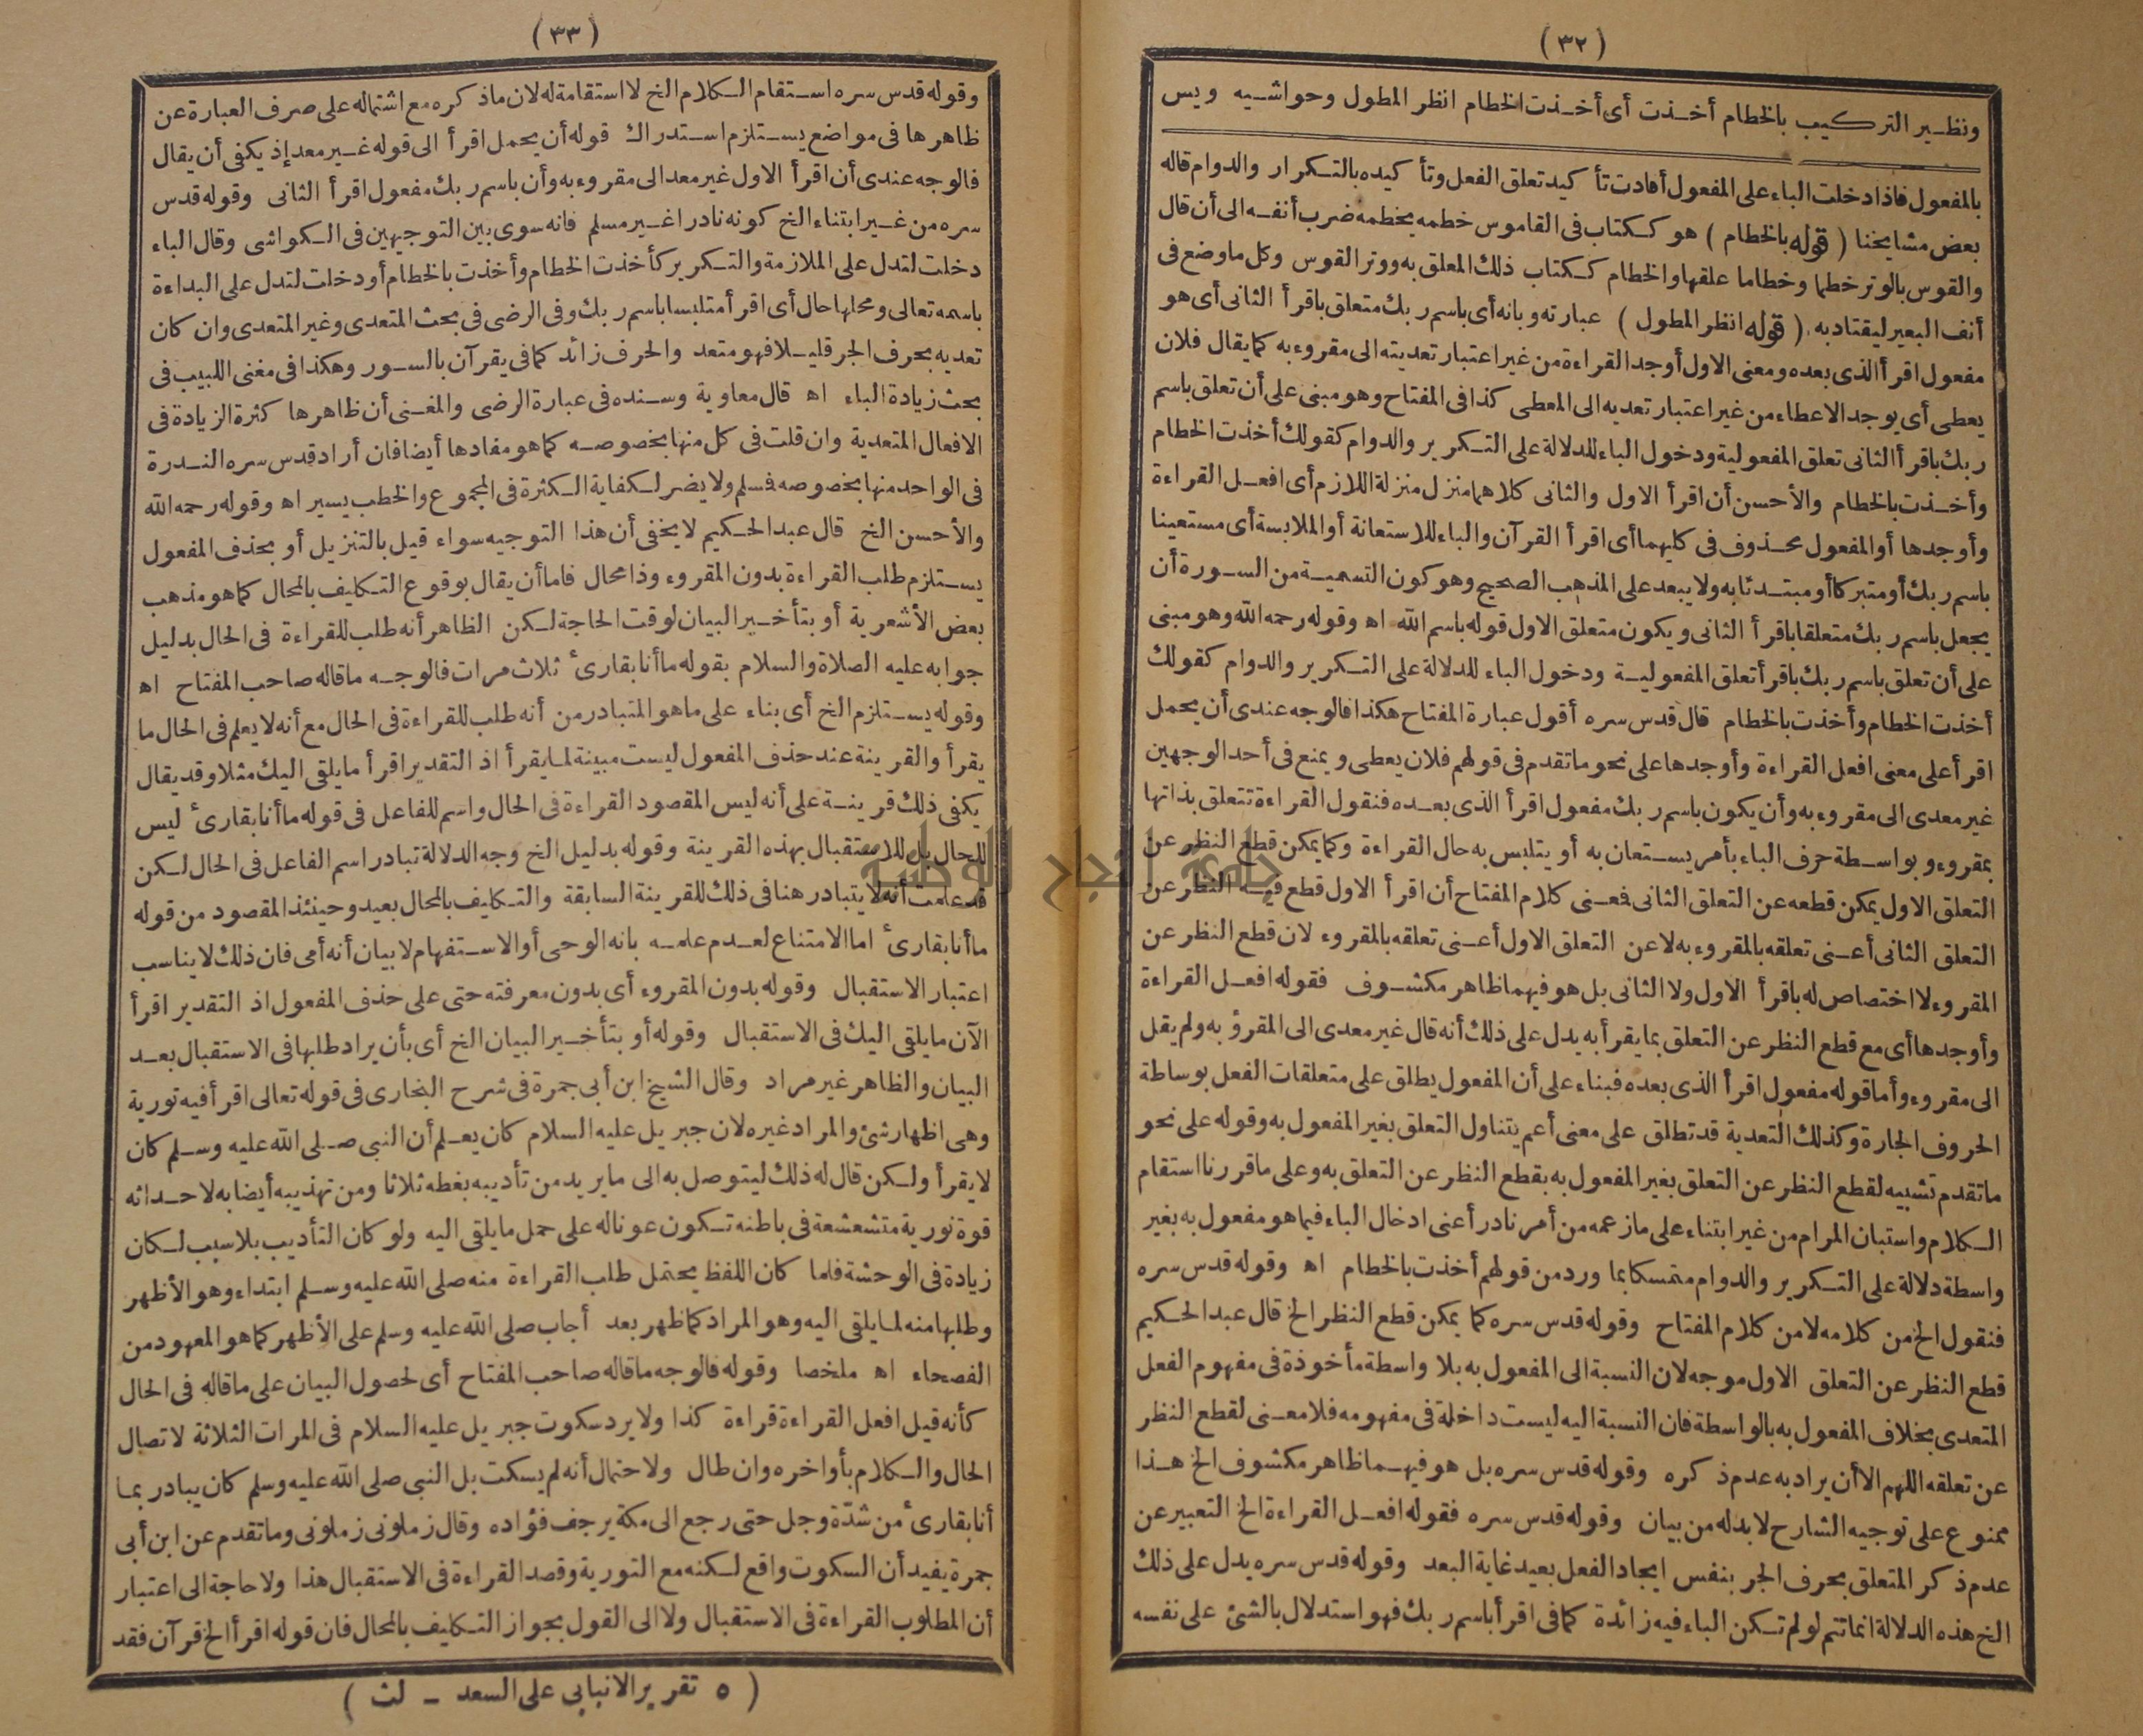 (٣٢)
ونظير التركيب بالخطام أخذت أى أخذت الخطام انظر المطول وحواشيه ويس
بالمفعول فاذا دخلت الباء على المفعول أفادت تأكيد تعلق الفعل وتأكيده بالتكرار والدوام قاله
بعض مشايخنا (قوله بالخطام) هو ككتاب فى القاموس خطمه يخطمه ضرب أنفه الى أن قال
والقوس بالوتر خطما وخطاما علقها والخطام ككتاب ذلك المعلق به ووتر القوس وكل ما وضع فى
أنف البعير ليقتاد به (قوله انظر المطول) عبارته وبانه أى باسم ربك متعلق باقرأ الثانى أى هو
مفعول اقرأ الذى بعده ومعنى الاول أوجد القراءة من غير اعتبار تعديته الى مقروء به كما يقال فلان
يعطى أى يوجد الاعطاء من غير اعتبار تعديه الى المعطى كذا فى المفتاح وهو مبنى على أن تعلق باسم
ربك باقرأ الثانى تعلق المفعولية ودخول الباء للدلالة على التكرير والدوام كقولك أخذت الخطام
وأخذت بالخطام والأحسن أن اقرأ الاول والثانى كلاهما منزل منزلة اللازم أى افعل القراءة
وأوجدها أو المفعول محذوف فى كليهما أى اقرأ القرآن والباء للاستعانة أو الملابسة أى مستعينا
باسم ربك أو متبركا أو مبتدئا به ولا يبعد على المذهب الصحيح وهو كون التسمية من السورة أن
يجعل باسم ربك متعلقا باقرأ الثانى ويكون متعلق الاول قوله باسم الله اه وقوله رحمه الله وهو مبنى
على أن تعلق باسم ربك باقرأ تعلق المفعولية ودخول الباء للدلالة على التكرير والدوام كقولك
أخذت الخطام وأخذت بالخطام قال قدس سره أقول عبارة المفتاح هكذا فالوجه عندى أن يحمل
اقرأ على معنى افعل القراءة وأوجدها على نحو ما تقدم فى قولهم فلان يعطى ويمنع فى أحد الوجهين
غير معدى الى مقروء به وأن يكون باسم ربك مفعول اقرأ الذى بعده فنقول القراءة تتعلق بذاتها
بمقروء وبواسطة حرف الباء بأمر يستعان به أو يتلبس به حال القراءة وكما يمكن قطع النظر عن
التعلق الاول يمكن قطعه عن التعلق الثانى فمعنى كلام المفتاح أن اقرأ الاول قطع فيه النظر عن
التعلق الثانى أعنى تعلقه بالمقروء به لا عن التعلق الاول أعنى تعلقه بالمقروء لان قطع النظر عن
المقروء لا اختصاص له باقرأ الاول ولا الثانى بل هو فيهما ظاهر مكشوف فقوله افعل القراءة
وأوجدها أى مع قطع النظر عن التعلق بما يقرأ به يدل على ذلك أنه قال غير معدى الى المقرؤ به ولم يقل
الى مقروء وأما قوله مفعول اقرأ الذى بعده فبناء على أن المفعول يطلق على متعلقات الفعل بوساطة
الحروف الجارة وكذلك التعدية قد تطلق على معنى أعم يتناول التعلق بغير المفعول به وقوله على نحو
ما تقدم تشبيه لقطع النظر عن التعلق بغير المفعول به بقطع النظر عن التعلق به وعلى ما قررنا استقام
الكلام واستبان المرام من غير ابتناء على ما زعمه من أمر نادر أعنى ادخال الباء فيما هو مفعول به بغير
واسطة دلالة على التكرير والدوام متمسكا بما ورد من قولهم أخذت بالخطام اه وقوله قدس سره
فنقول الخ من كلامه لا من كلام المفتاح وقوله قدس سره كما يمكن قطع النظر الخ قال عبد الحكيم
قطع النظر عن التعلق الاول موجه لان النسبة الى المفعول به بلا واسطة مأخوذة فى مفهوم الفعل
المتعدى بخلاف المفعول به بالواسطة فان النسبة اليه ليست داخلة فى مفهومه فلا معنى لقطع النظر
عن تعلقه اللهم الا أن يراد به عدم ذكره وقوله قدس سره بل هو فيهما ظاهر مكشوف الخ هذا
ممنوع على توجيه الشارح لا بد له من بيان وقوله قدس سره فقوله افعل القراءة الخ التعبير عن
عدم ذكر المتعلق بحرف الجر بنفس ايجاد الفعل بعيد غاية البعد وقوله قدس سره يدل على ذلك
الخ هذه الدلالة انما تتم لو لم تكن الباء فيه زائدة كما فى اقرأ باسم ربك فهو استدلال بالشئ على نفسه
(٣٣)
وقوله قدس سره استقام الكلام الخ لا استقامة له لان ما ذكره مع اشتماله على صرف العبارة عن
ظاهرها فى مواضع يستلزم استدراك قوله أن يحمل اقرأ الى قوله غير معد إذ يكفى أن يقال
فالوجه عندى أن اقرأ الاول غير معد الى مقروء به وأن باسم ربك مفعول اقرأ الثانى وقوله قدس
سره من غير ابتناء الخ كونه نادرا غير مسلم فانه سوى بين التوجيهين فى الكواشى وقال الباء
دخلت لتدل على الملازمة والتكرير كأخذت الخطام وأخذت بالخطام أو دخلت لتدل على البداءة
باسمه تعالى ومحلها حال أى اقرأ متلبسا باسم ربك وفى الرضى فى بحث المتعدى وغير المتعدى وان كان
تعديه بحرف الجر قليلا فهو متعد والحرف زائد كما فى يقرآن بالسور وهكذا فى مغنى اللبيب فى
بحث زيادة الباء اه قال معاوية وسنده فى عبارة الرضى والمغنى أن ظاهرها كثرة الزيادة فى
الافعال المتعدية وان قلت فى كل منها بخصوصه كما هو مفادها أيضا فان أراد قدس سره الندرة
فى الواحد منها بخصوصه فسلم ولا يضر لكفاية الكثرة فى المجموع والخطب يسير اه وقوله رحمه الله
والأحسن الخ قال عبد الحكيم لا يخفى أن هذا التوجيه سواء قيل بالتنزيل أو بحذف المفعول
يستلزم طلب القراءة بدون المقروء وذا محال فاما أن يقال بوقوع التكليف بالمحال كما هو مذهب
بعض الأشعرية أو بتأخير البيان لوقت الحاجة لكن الظاهر أنه طلب للقراءة فى الحال بدليل
جوابه عليه الصلاة والسلام بقوله ما أنا بقارئ ثلاث مرات فالوجه ما قاله صاحب المفتاح اه
وقوله يستلزم الخ أى بناء على ما هو المتبادر من أنه طلب للقراءة فى الحال مع أنه لا يعلم فى الحال ما
يقرأ والقرينة عند حذف المفعول ليست مبينة لما يقرأ اذ التقدير اقرأ ما يلقى اليك مثلا وقد يقال
يكفى ذلك قرينة على أنه ليس المقصود القراءة فى الحال واسم للفاعل فى قوله ما أنا بقارئ ليس
للحال بل للاستقبال بهذه القرينة وقوله بدليل الخ وجه الدلالة تبادر اسم الفاعل فى الحال لكن
قد علمت أنه لا يتبادر هنا فى ذلك للقرينة السابقة والتكليف بالمحال بعيد وحينئذ المقصود من قوله
ما أنا بقارئ اما الامتناع لعدم علمه بانه الوحى أو الاستفهام لا بيان أنه أمى فان ذلك لا يناسب
اعتبار الاستقبال وقوله بدون المقروء أى بدون معرفته حتى على حذف المفعول اذ التقدير اقرأ
الآن ما يلقى اليك فى الاستقبال وقوله أو بتأخير البيان الخ أى بأن يراد طلبها فى الاستقبال بعد
البيان والظاهر غير مراد وقال الشيخ ابن أبى جمرة فى شرح البخارى فى قوله تعالى اقرأ فيه تورية
وهى اظهار شئ والمراد غيره لان جبريل عليه السلام كان يعلم أن النبى صلى الله عليه وسلم كان
لا يقرأ ولكن قال له ذلك ليتوصل به الى ما يريد من تأديبه بغطه ثلاثا ومن تهذيبه أيضا به لاحداثه
قوة نورية متشعشعة فى باطنه تكون عونا له على حمل ما يلقى اليه ولو كان التأديب بلا سبب لكان
زيادة فى الوحشة فلما كان اللفظ يحتمل طلب القراءة منه صلى الله عليه وسلم ابتداء وهو الأظهر
وطلبها منه لما يلقى اليه وهو المراد كما ظهر بعد أجاب صلى الله عليه وسلم على الأظهر كما هو المعهود من
الفصحاء اه ملخصا وقوله فالوجه ما قاله صاحب المفتاح أى لحصول البيان على ما قاله فى الحال
كأنه قيل افعل القراءة قراءة كذا ولا يرد سكوت جبريل عليه السلام فى المرات الثلاثة لاتصال
الحال والكلام بأواخره وان طال ولاحتمال أنه لم يسكت بل النبى صلى الله عليه وسلم كان يبادر بما
أنا بقارئ من شدّة وجل حتى رجع الى مكة يرجف فؤاده وقال زملونى زملونى وما تقدم عن ابن أبى
جمرة يفيد أن السكوت واقع لكنه مع التورية وقصد القراءة فى الاستقبال هذا ولا حاجة الى اعتبار
أن المطلوب القراءة فى الاستقبال ولا الى القول بجواز التكليف بالمحال فان قوله اقرأ الخ قرآن فقد
(٥ تقرير الانبابى على السعد - لث)
جامعة النجاح الوطنية